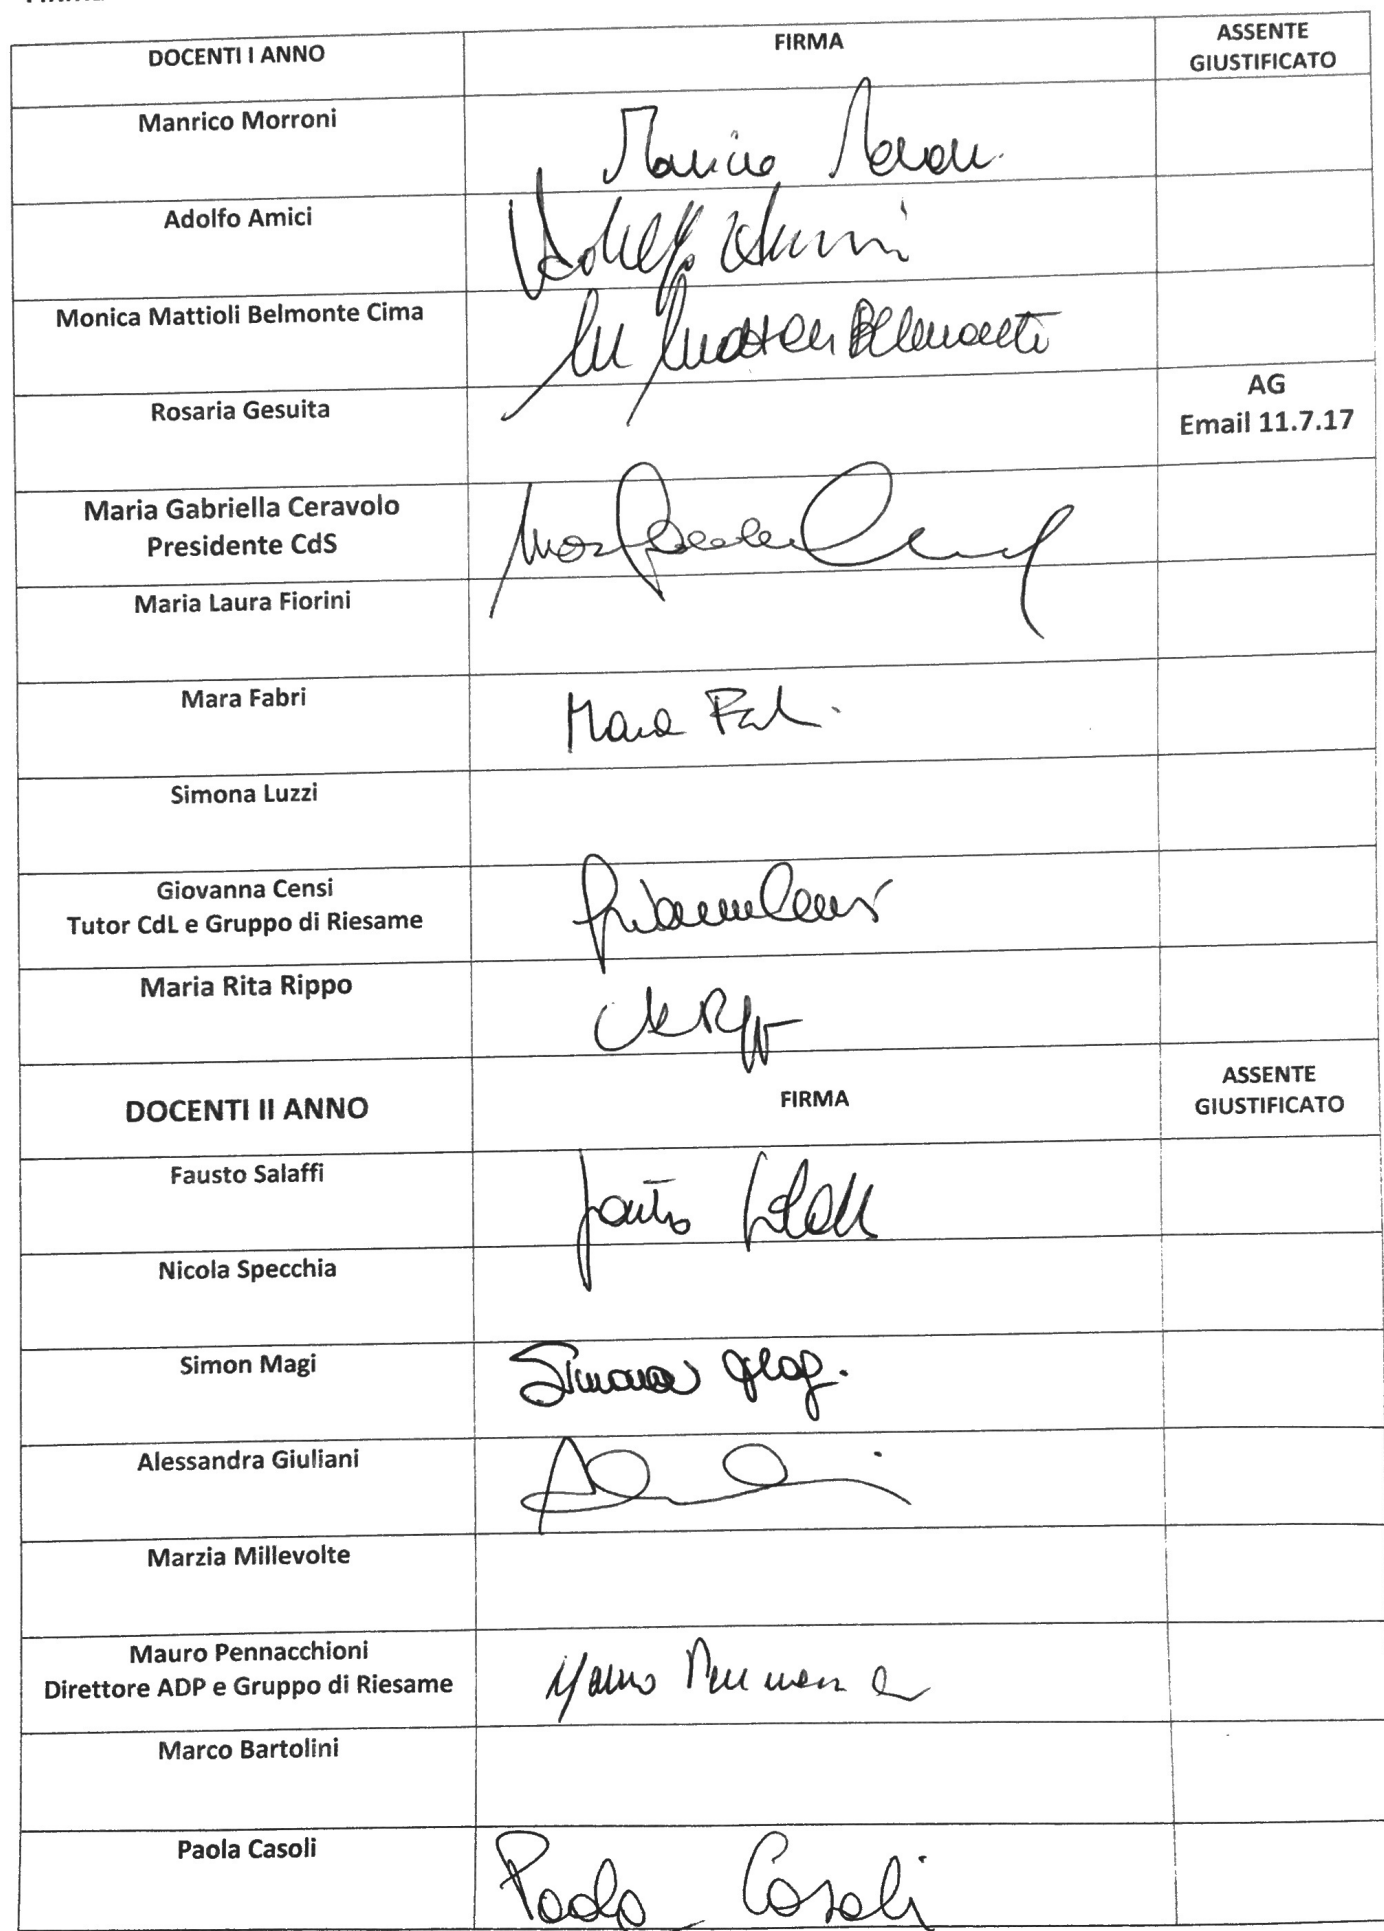 DOCENTI I ANNO FIRMA ASSENTE
GIUSTIFICATO
Manrico Morroni
Adolfo Amici
Monica Mattioli Belmonte Cima
Rosaria Gesuita AG
Email 11.7.17
Maria Gabriella Ceravolo
Presidente CdS
Maria Laura Fiorini
Mara Fabri Mara
Simona Luzzi
Giovanna Censi
Tutor CdL e Gruppo di Riesame
Maria Rita Rippo
DOCENTI II ANNO FIRMA ASSENTE
GIUSTIFICATO
Fausto Salaffi
Nicola Specchia
Simon Magi Simona
Alessandra Giuliani
Marzia Millevolte
Mauro Pennacchioni
Direttore ADP e Gruppo di Riesame Mauro
Marco Bartolini
Paola Casoli Paola Casoli